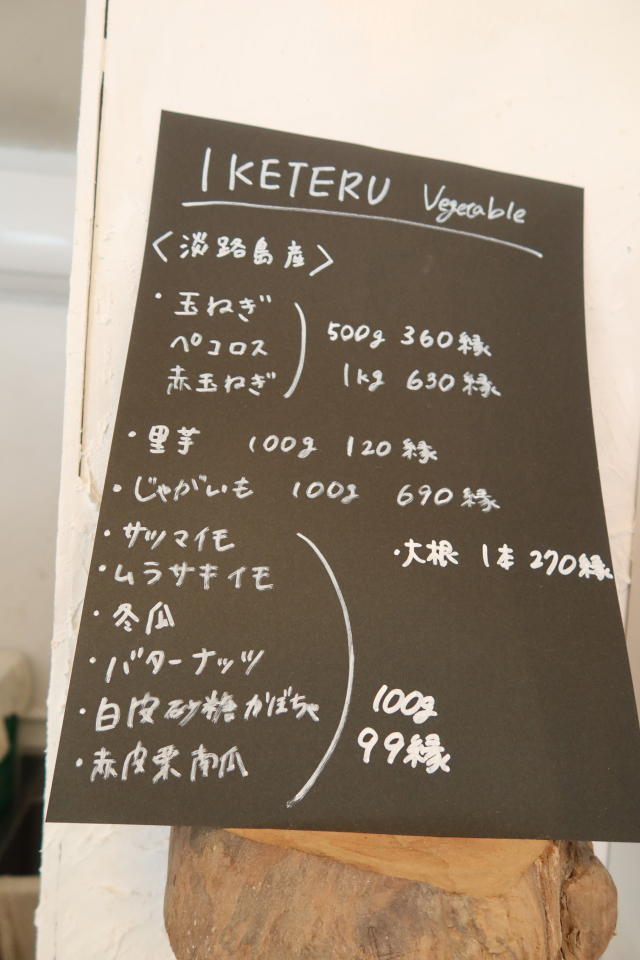 IKETERU Vegetable
〈淡路島産〉
・玉ねぎ
ペコロス
赤玉ねぎ
500g 360縁
1kg 630縁
・里芋 100g 120縁
・じゃがいも 100g 690縁
・大根 1本 270縁
・サツマイモ
・ムラサキイモ
・冬瓜
・バターナッツ
・白皮砂糖かぼちゃ
・赤皮栗南瓜
100g
99縁